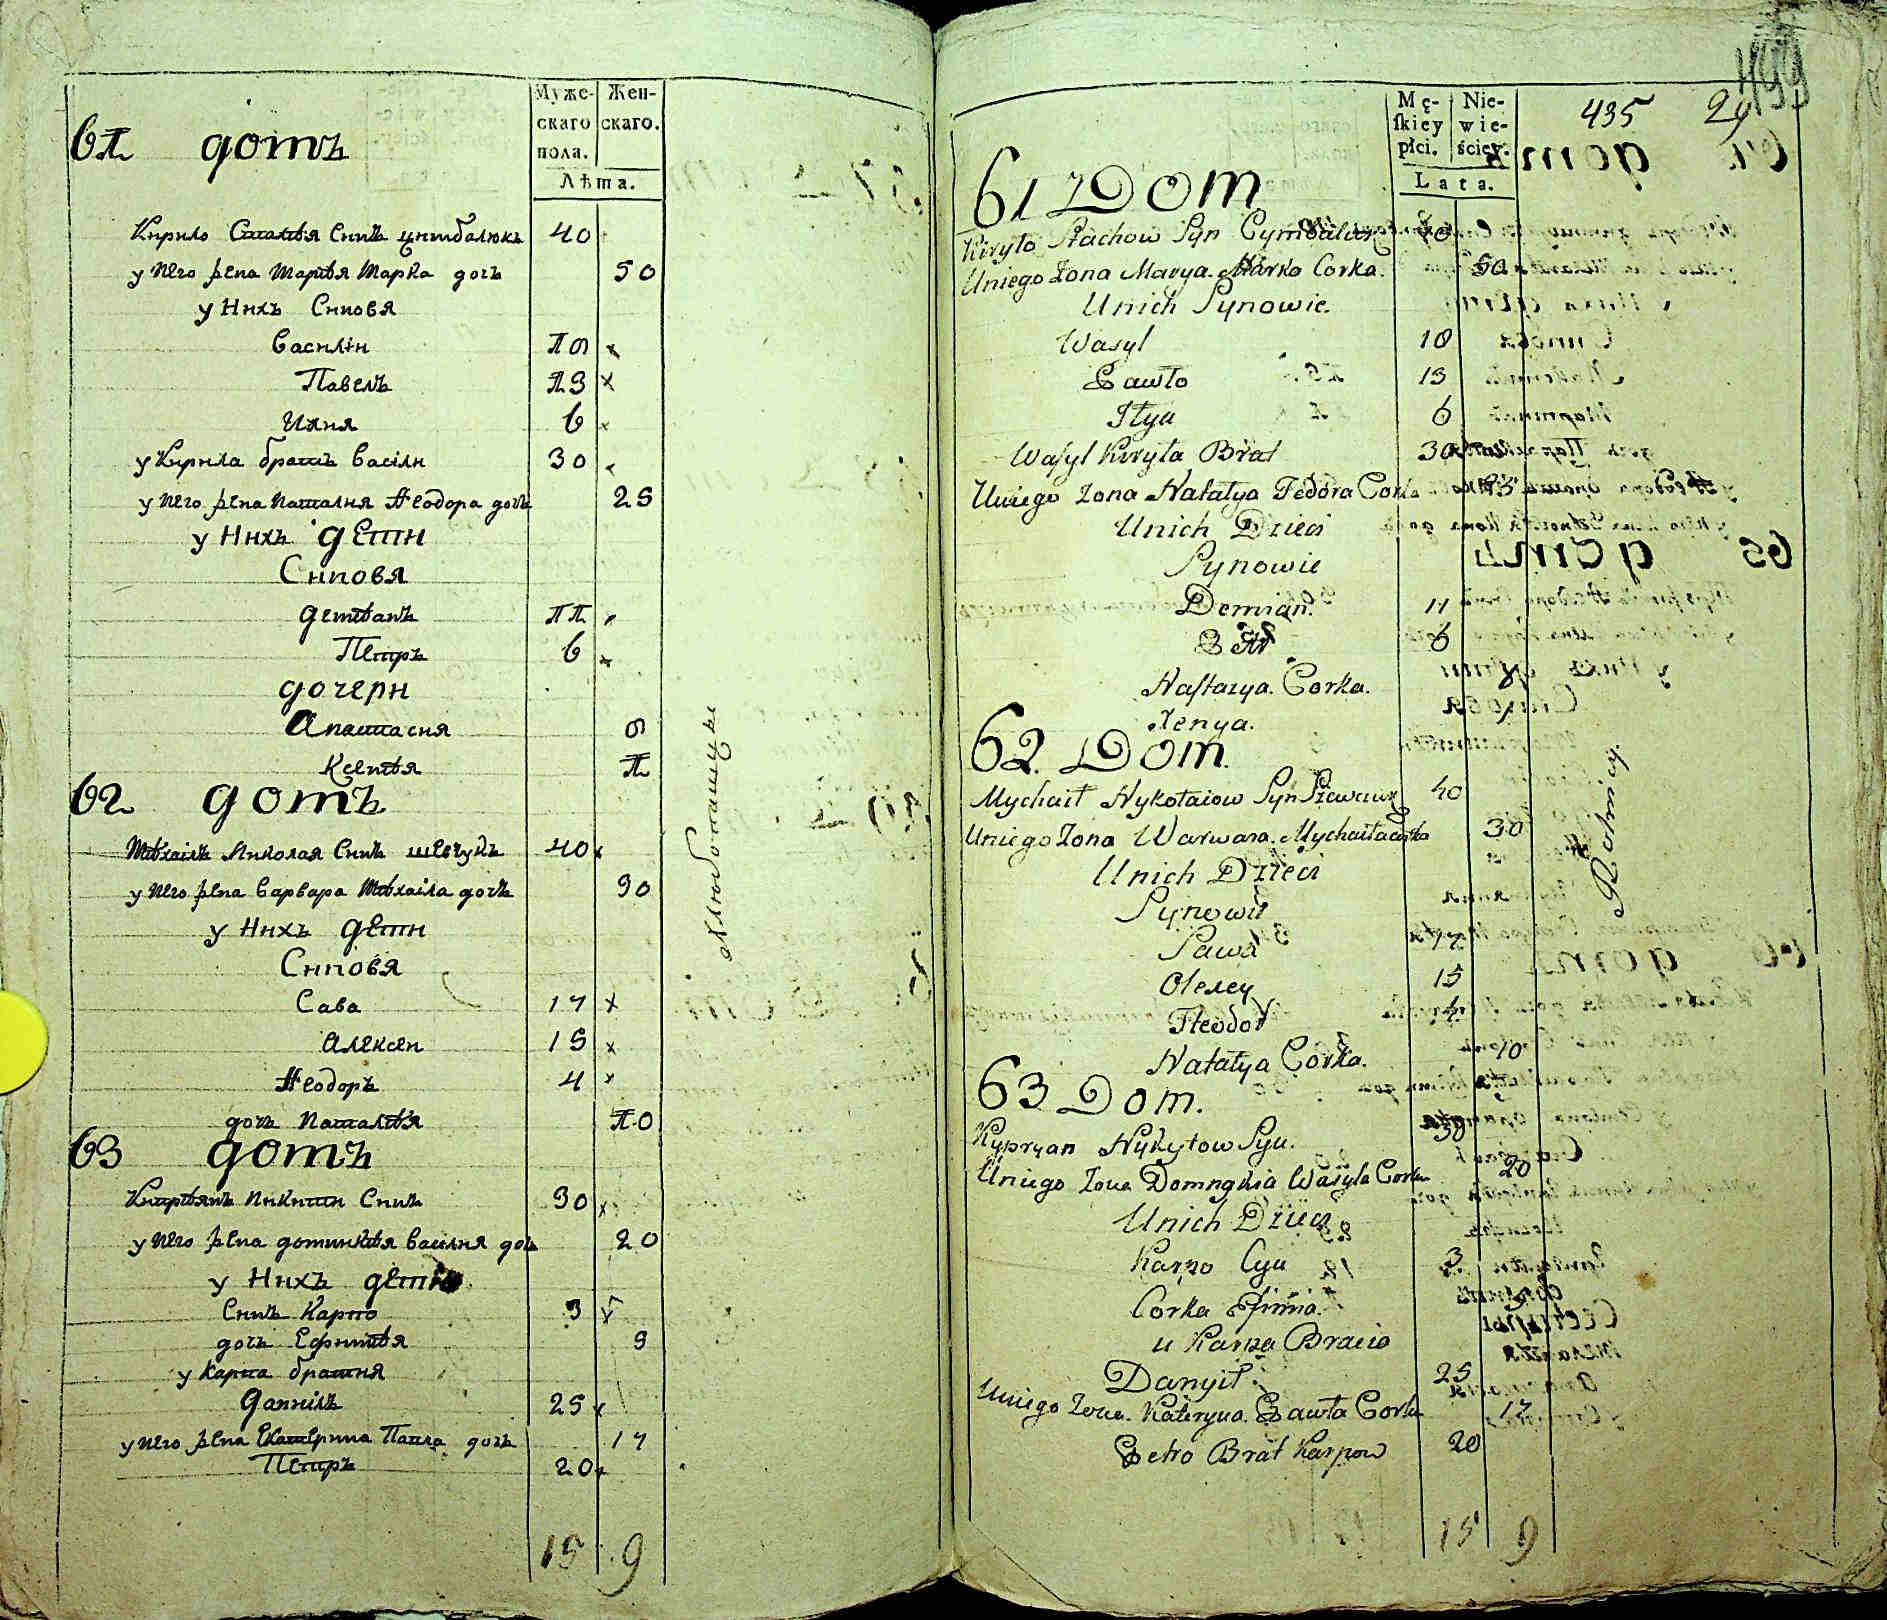 Муже-
скаго
пола.
Жен-
скаго.
Лѣта.
61 домъ
Кирило Сташѣя Снпъ цимбалюкъ 40
у него жена Марѣя Марка дочъ 50
у Нихъ Синовя
Василіи 18
Павелъ 13
Иляя 6
у Кирила братъ Василіи 30
у него жена Наталия Ѳеодора дочъ 25
у Нихъ дети
Синовя
демѣанъ 11
Петръ 6
дочери
Анастасия 8
Ксенѣя 1
62 домъ
Мѣхаилъ Николая Синъ шевчукъ 40
у него жена Варвара Мѣхаіла дочъ 30
у Нихъ дети
Синовя
Сава 17
Алексеи 15
Ѳеодоръ 4
дочъ Наталѣя 10
63 домъ
Кипрѣянъ Никити Синъ 30
у него жена доминикѣя Василия дочъ 20
у Нихъ дети
Синъ Карпо 3
дочъ Ефимѣя 9
у Карпа братия
Даниілъ 25
у него жена Екатерина Павла дочъ 17
Петръ 20
15 9
хлѣбопашцы
Mę-
skiey
płci.
Nie-
wie-
ściey.
Lata.
435 29
499
61 Dom
Kiryło Stachow Syn Cymbaluk 40
Uniego Zona Marya Marka Corka. 50
Unich Synowie.
Wasyl 18
Pawło 13
Ilya 6
Wasyl Kiryła Brat 30
Uniego Zona Natalya Fedora Corka 25
Unich Dzieci
Synowie
Demian. 11
Petr 6
Nastazya. Corka.
Xenya.
62. Dom.
Mychaił Nykołaiow Syn Szewczuk 40
Uniego Zona Warwara. Mychaiła Corka 30
Unich Dzieci
Synowie
Sawa 17
Olexey 15
Fteodor 4
Natalya Corka. 10
63 Dom.
Kypryan Nykytow Syn. 30
Uniego Zona Domnykia Wasyla Corka 20
Unich Dzieci
Karpo Syn 3
Corka Efimia. 9
u Karpa Bracia
Danyił 25
Uniego Zona. Kateryna. Pawła Corka 17
Petro Brat Karpow 20
15 9
Rolnicy